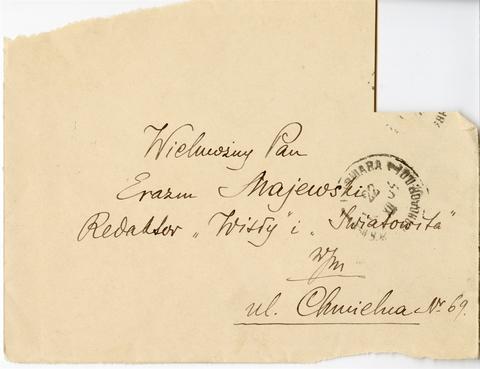 Wielmożny Pan
Erazm Majewski
Redaktor „Wisły” i „Światowita”
w/m
ul. Chmielna № 69.